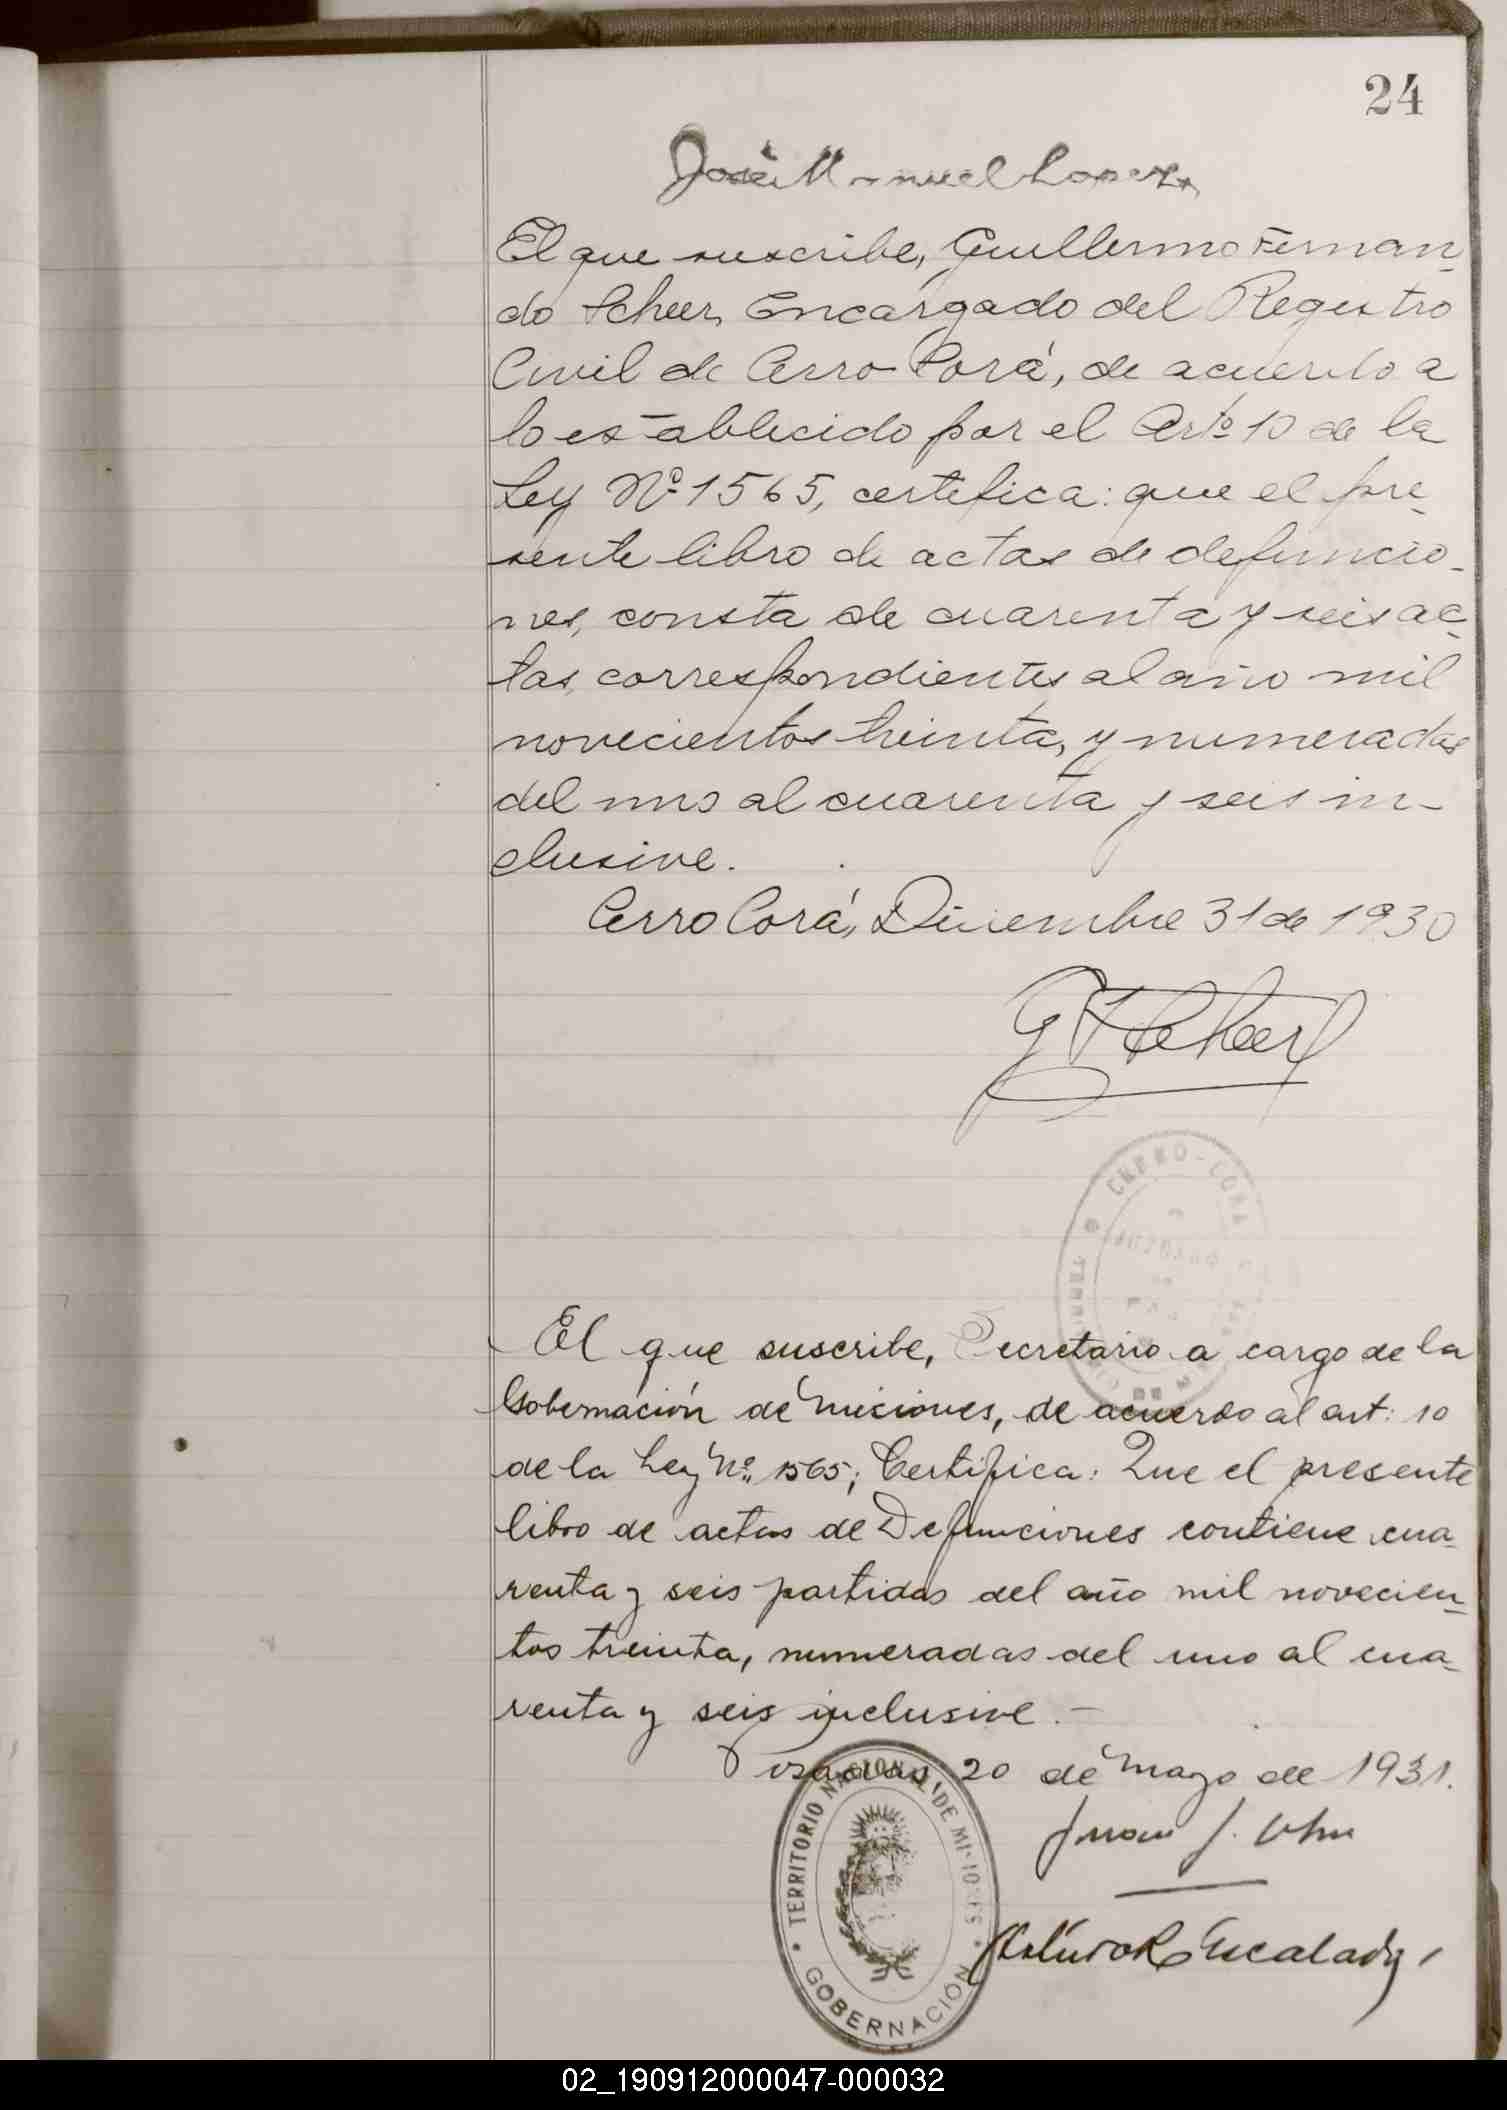 24
José Manuel Lopez
El que suscribe, Guillermo Fernan-
do Scheer, Encargado del Registro
Civil de Cerro Corá, de acuerdo a
lo establecido por el Arto 10 de la
Ley Nº 1565, certifica: que el pre-
sente libro de actas de defuncio-
nes, consta de cuarenta y seis ac-
tas, correspondientes al año mil
novecientos treinta, y numeradas
del uno al cuarenta y seis in-
clusive.
Cerro Corá, Diciembre 31 de 1930
G F Scheer
CERRO-CORA
El que suscribe, Secretario a cargo de la
Gobernación de Misiones, de acuerdo al art: 10
de la Ley Nº 1565; Certifica: Que el presente
libro de actas de Defunciones contiene cua-
renta y seis partidas del año mil novecien-
tos treinta, numeradas del uno al cua-
renta y seis inclusive.-
Posadas, 20 de Mayo de 1931.
TERRITORIO NACIONAL DE MISIONES
GOBERNACIÓN
02_190912000047-000032